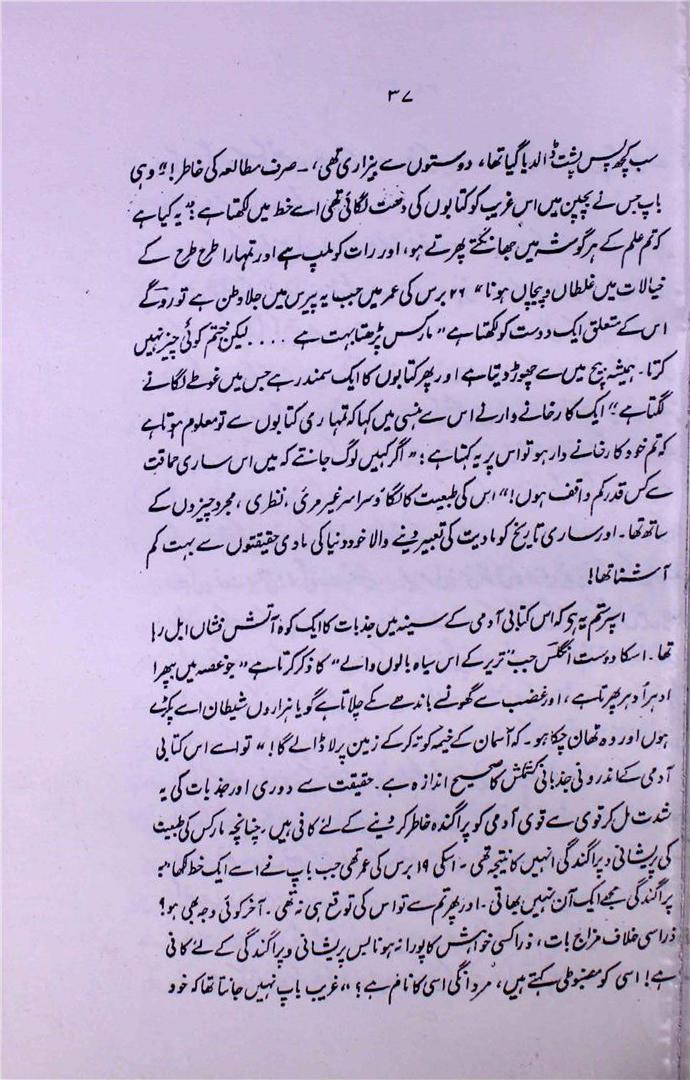 ۳۷
سب کچھ پس پشت ڈالدیا گیا تھا، دوستوں سے بیزاری تھی، ۔ صرف مطالعہ کی خاطر! “ وہی
باپ جس نے بچپن میں اس غریب کو کتابوں کی دھت لگائی تھی اسے خط میں لکھتا ہے: ”یہ کیا ہے
کہ تم علم کے ہر گوشہ میں جھانکتے پھرتے ہو، اور رات کو لمپ ہے اور تمہارا طرح طرح کے
خیالات میں غلطاں و پیچاں ہونا“ ۲۶ برس کی عمر میں جب یہ پیرس میں جلا وطن ہے تو روگے
اس کے متعلق ایک دوست کو لکھتا ہے ”مارکس پڑھتا بہت ہے .... لیکن ختم کوئی چیز نہیں
کرتا۔ ہمیشہ بیچ میں سے چھوڑ دیتا ہے اور پھر کتابوں کا ایک سمندر ہے جس میں غوطے لگانے
لگتا ہے“۔ ایک کارخانے دار نے اس سے ہنسی میں کہا کہ تمہاری کتابوں سے تو معلوم ہوتا ہے
کہ تم خود کارخانے دار ہو تو اس پر یہ کہتا ہے: ”اگر کہیں لوگ جانتے کہ میں اس ساری حماقت
سے کس قدر کم واقف ہوں!“ اس کی طبیعت کا لگاؤ سراسر غیر مرئی، نظری، مجرد چیزوں کے
ساتھ تھا۔ اور ساری تاریخ کو مادیت کی تعبیر دینے والا خود دنیا کی مادی حقیقتوں سے بہت کم
آشنا تھا!
اسپر ستم یہ ہو کہ اس کتابی آدمی کے سینہ میں جذبات کا ایک کوہ آتش فشاں ابل رہا
تھا۔ اسکا دوست انگلس جب ”تریر کے اس سیاہ بالوں والے“ کا ذکر کرتا ہے ”جو غصہ میں بپھرا
ادہر اُدہر پھرتا ہے، اور غضب سے گھونسے باندھے کے چلاتا ہے گویا ہزاروں شیطان اسے پکڑے
ہوں اور وہ ٹھان چکا ہو۔ کہ آسمان کے خیمہ کو تہ کر کے زمین پر لا ڈالے گا! “ تو اسے اس کتابی
آدمی کے اندرونی جذباتی کشمکش کا صحیح اندازہ ہے۔ حقیقت سے دوری اور جذبات کی یہ
شدت مل کر قوی سے قوی آدمی کو پراگندہ خاطر کر دینے کے لئے کافی ہیں۔ چنانچہ مارکس کی طبیعت
کی پریشانی و پراگندگی انہیں کا نتیجہ تھی۔ اسکی ۱۹ برس کی عمر تھی جب باپ نے اسے ایک خط لکھا ”یہ
پراگندگی مجھے ایک آن نہیں بھاتی۔ اور پھر تم سے تو اس کی توقع ہی نہ تھی۔ آخر کوئی وجہ بھی ہو؟
ذرا سی خلاف مزاج بات، ذرا کسی خواہش کا پورا نہ ہونا بس پریشانی و پراگندگی کے لئے کافی
ہے! اسی کو مضبوطی کہتے ہیں، مردانگی اسی کا نام ہے؟ “، غریب باپ نہیں جانتا تھا کہ خود